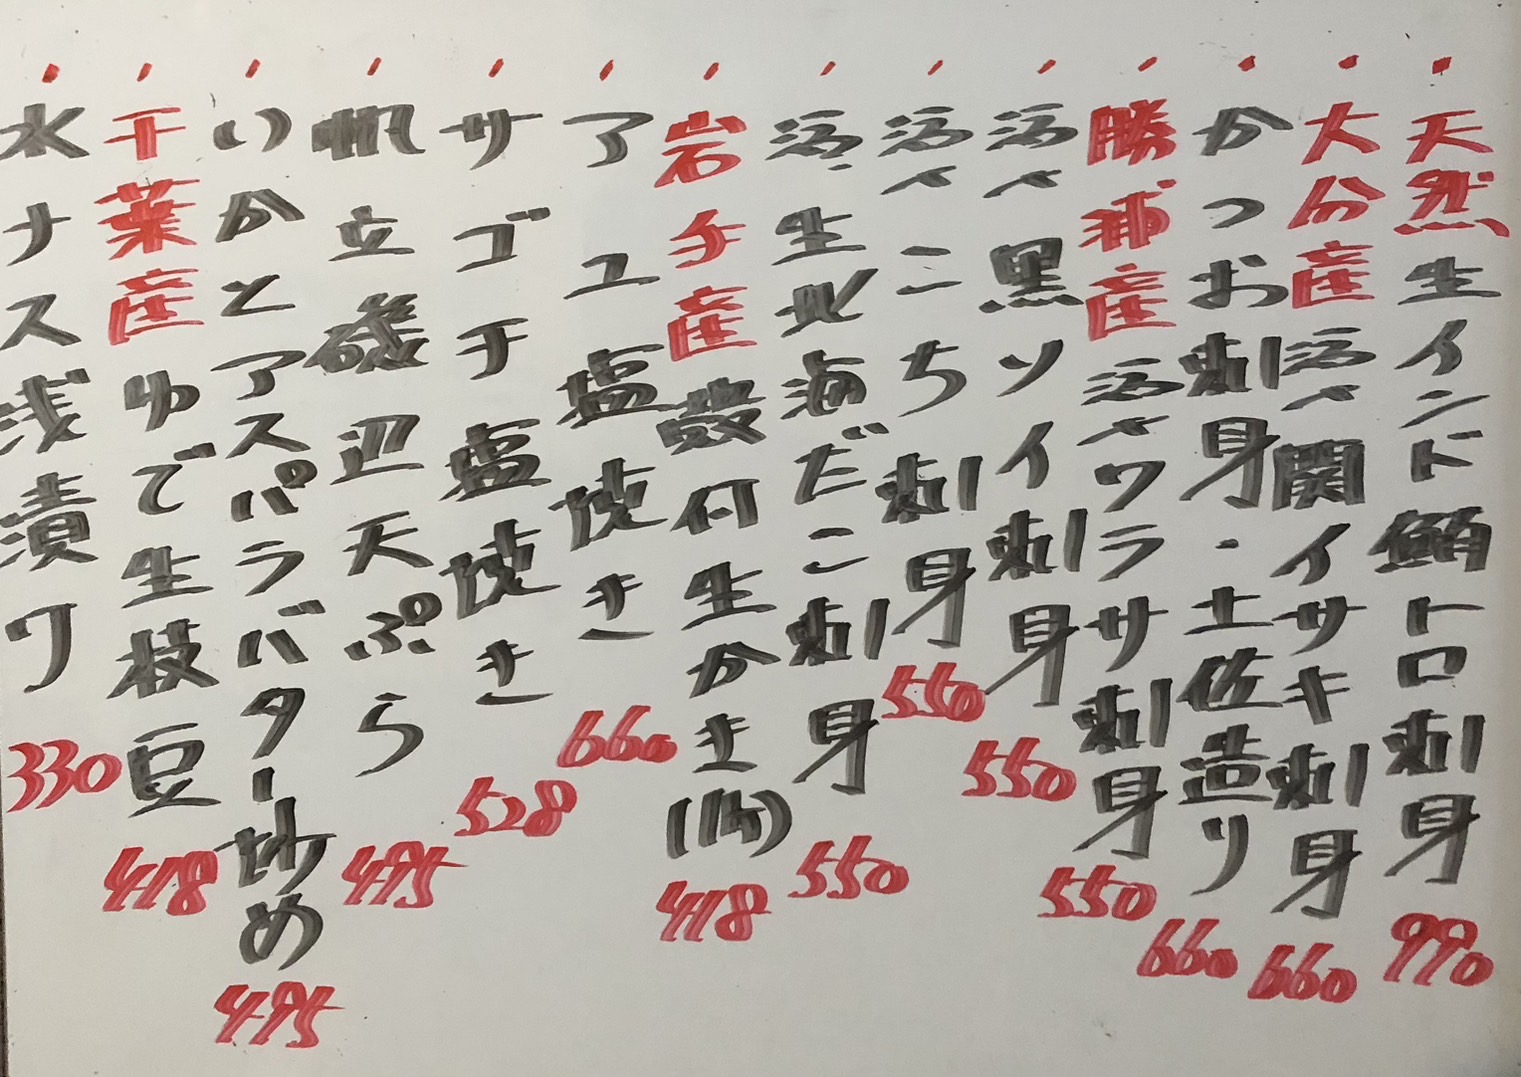 天然生インド鮪トロ刺身 990
大分産活〆関イサキ刺身 660
かつお刺身・土佐造り 660
勝浦産活〆ワラサ刺身 550
活〆黒ソイ刺身 550
活〆こち刺身 550
活〆生北海だこ刺身 550
岩手産殻付生かき(1ヶ) 418
アユ塩焼き 660
サゴチ塩焼き 528
帆立磯辺天ぷら 495
いかとアスパラバター炒め 495
千葉産ゆで生枝豆 418
水ナス浅漬ワ 330